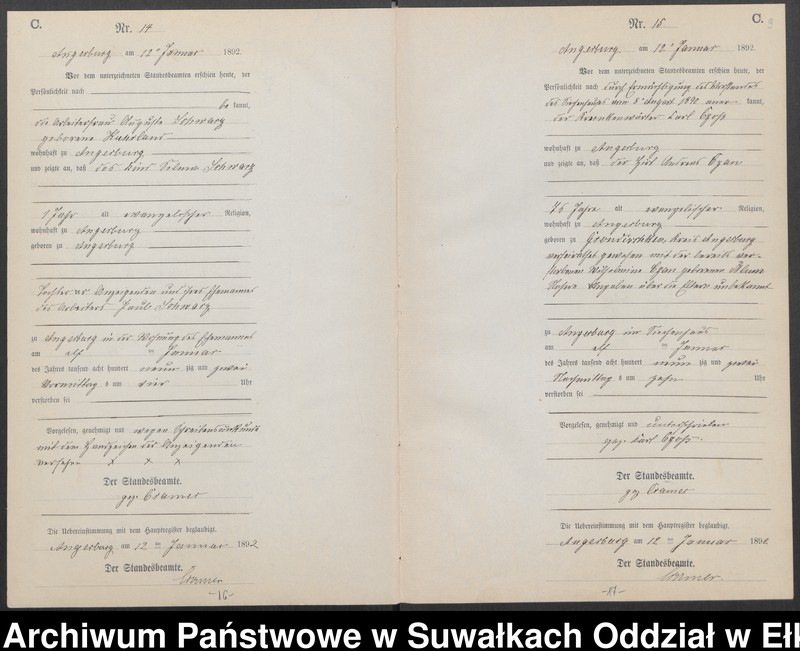 C.
Nr. 14
Angerburg am 12ten Januar 1892.
Vor dem unterzeichneten Standesbeamten erschien heute, der
Persönlichkeit nach
be kannt,
die Arbeiterfrau Auguste Schwarz
geborene
wohnhaft zu Angerburg
und zeigte an, daß das Kind Selma Schwarz
1 Jahr alt evangelischer Religion,
wohnhaft zu Angerburg
geboren zu Angerburg
Tochter der Anzeigenden und ihres Ehemannes
des Arbeiters Paul Schwarz
zu Angerburg in der Wohnung des Ehemannes
am elf ten Januar
des Jahres tausend acht hundert neun zig und zwei
Vormittag s um vier Uhr
verstorben sei
Vorgelesen, genehmigt und wegen Schreibensunkunde
mit dem Handzeichen der Anzeigenden
versehen x x x
Der Standesbeamte.
gez. Cramer
Die Uebereinstimmung mit dem Hauptregister beglaubigt.
Angerburg am 12 ten Januar 1892
Der Standesbeamte.
Cramer
-16-
C.
9
Nr. 15
Angerburg am 12ten Januar 1892
Vor dem unterzeichneten Standesbeamten erschien heute, der
Persönlichkeit nach durch Ermächtigung des Vorstandes
des Siechenhauses vom 8. August 1890 aner kannt,
der Krankenwärter Carl
wohnhaft zu Angerburg
und zeigte an, daß der Hirt Andreas Czan
76 Jahre alt evangelischer Religion,
wohnhaft zu Angerburg
geboren zu Kreis Angerburg
verheirathet gewesen mit der bereits ver-
storbenen Wilhelmine Czan geborenen Blum
Nähere Angaben über die Eltern unbekannt
zu Angerburg im Siechenhaus
am elf ten Januar
des Jahres tausend acht hundert neun zig und zwei
Nachmittag s um zehn Uhr
verstorben sei
Vorgelesen, genehmigt und unterschrieben
gez. Carl
Der Standesbeamte.
gez. Cramer
Die Uebereinstimmung mit dem Hauptregister beglaubigt.
Angerburg am 12 ten Januar 1892
Der Standesbeamte.
Cramer
-17-
Archiwum Państwowe w Suwałkach Oddział w Ełk